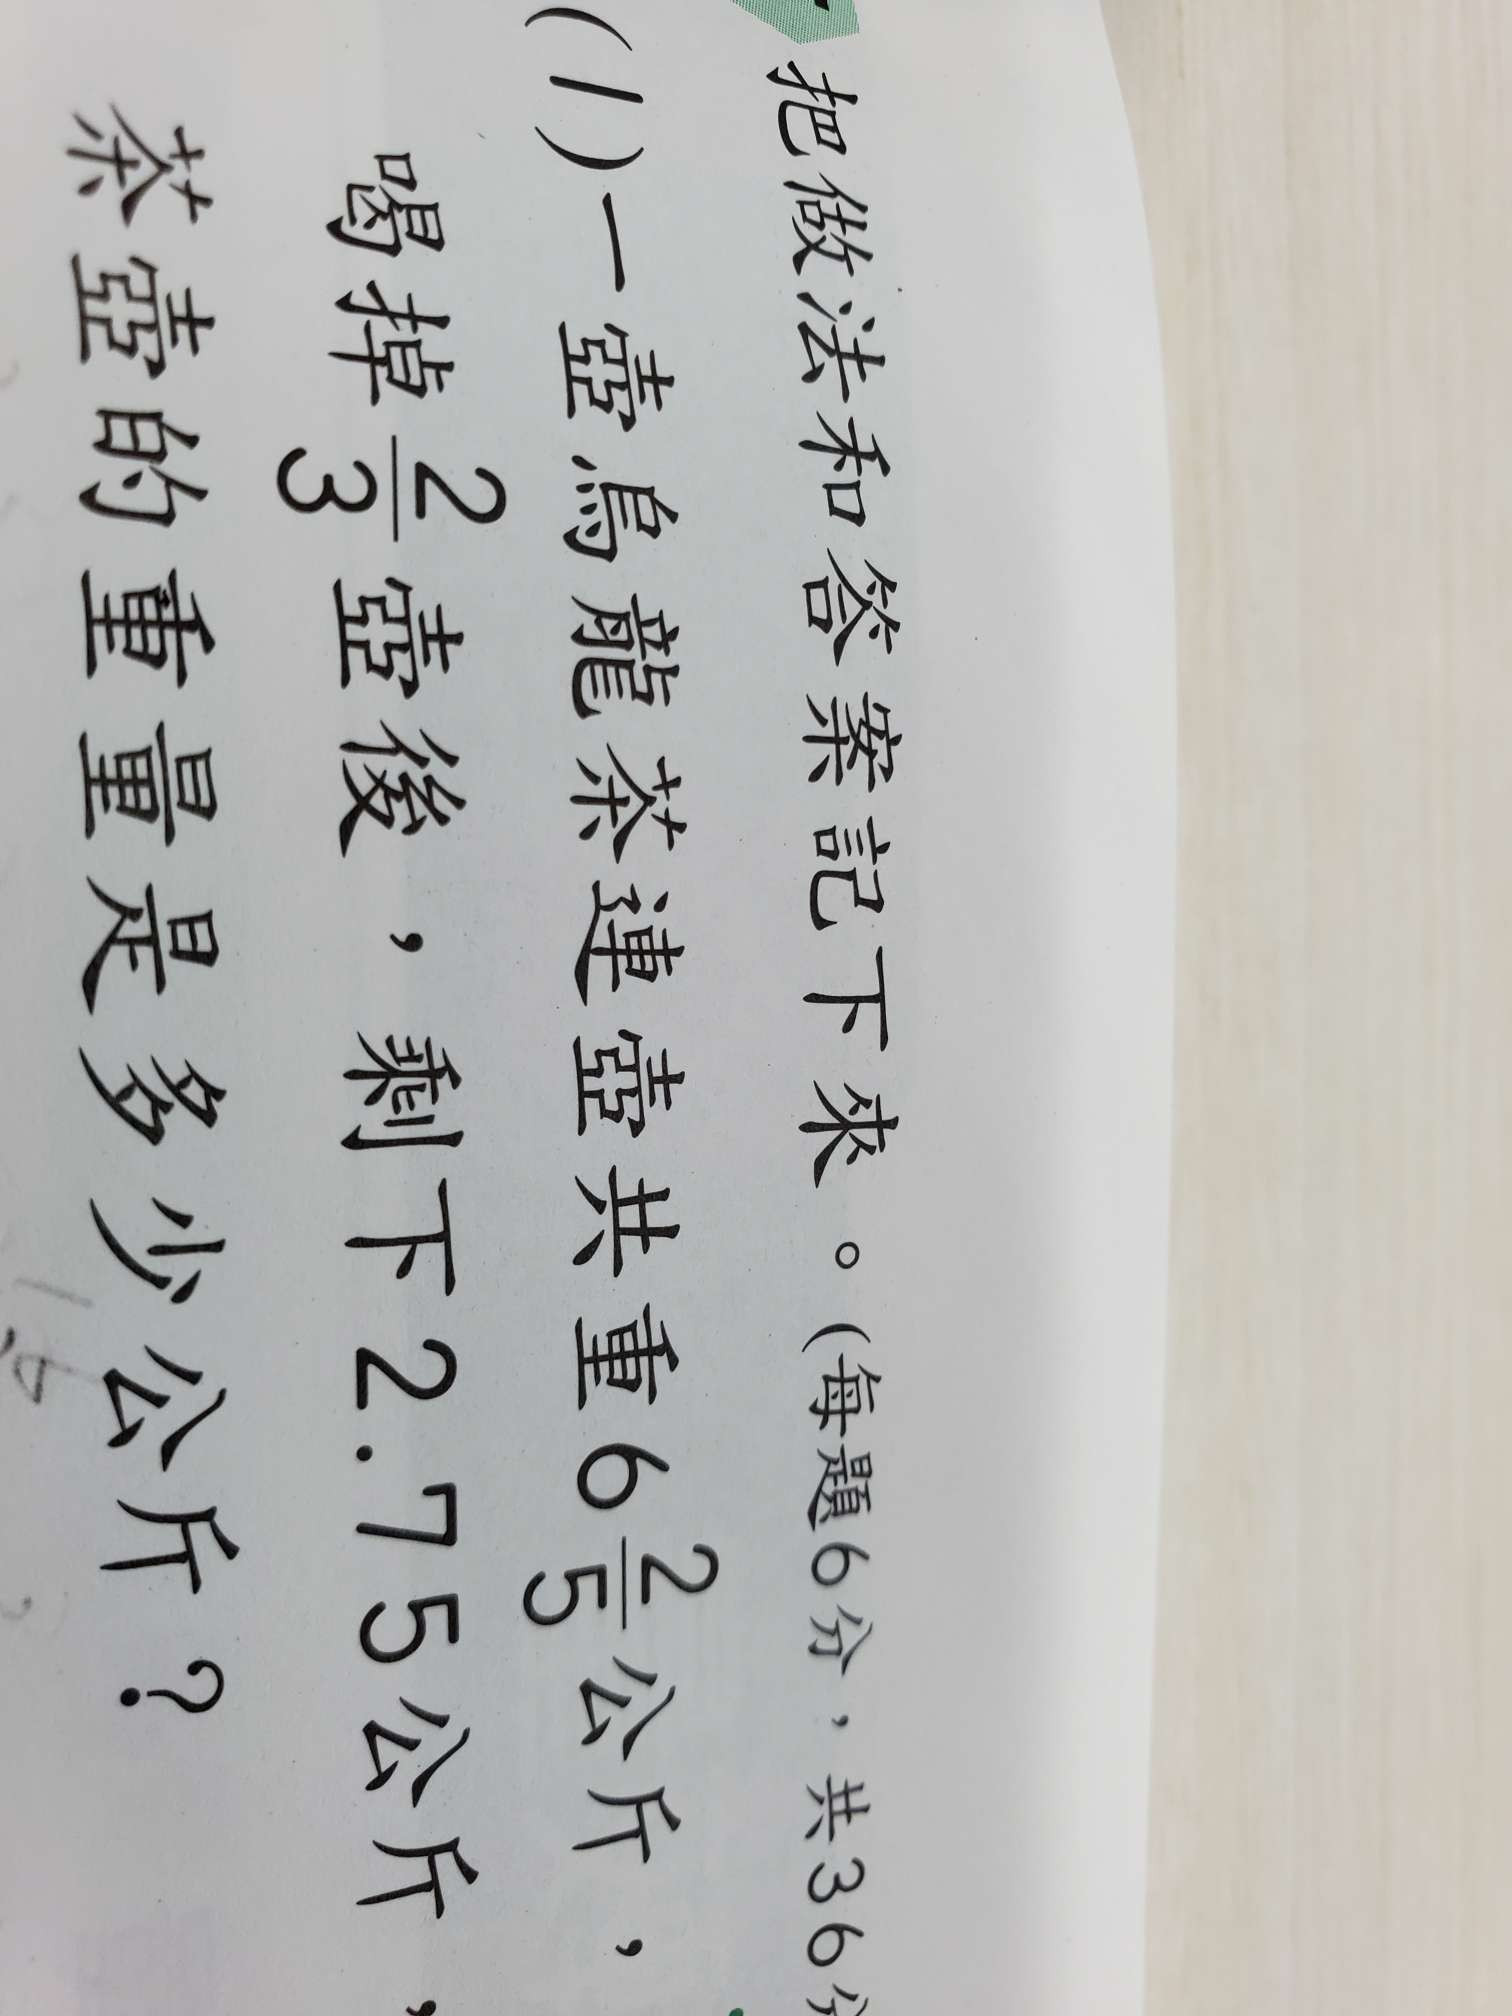 把做法和答案記下來。(每題6分，共36分
(1)一壺烏龍茶連壺共重6 2/5公斤，
喝掉2/3壺後，剩下2.75公斤，
茶壺的重量是多少公斤？